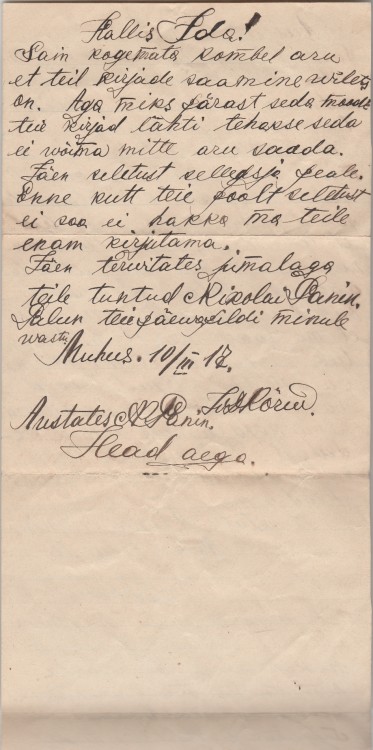 Kallis Ida!
Sain kogemata kombel aru
et teil kirjade saamine wilets
on. Aga miks pärast seda moodi
teie kirjad lahti tehakse seda
ei wõima mitte aru saada.
Jäen seletust selle asja peale.
Enne kutt teie poolt seletust
ei saa ei hakka ma teile
enam kirjutama.
Jäen terwitates jumalaga
teile tuntud Nikolai Panin.
Palun teie päewapildi minule
wastu
Muhus. 10/III 17.
Austates N Panin.
Head aega.